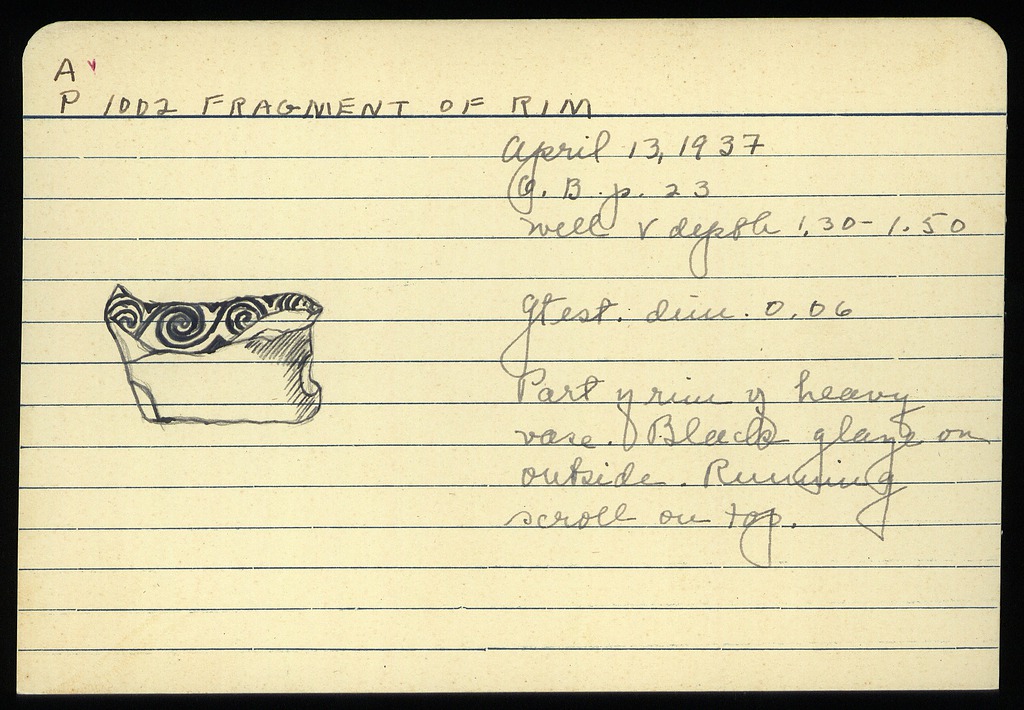 A v
P 1002 FRAGMENT OF RIM
April 13, 1937
G. B. p. 23
Well V depth 1.30 - 1.50
Gtest. dim. 0.06
Part of rim of heavy
vase. Black glaze on
outside. Running
scroll on top.